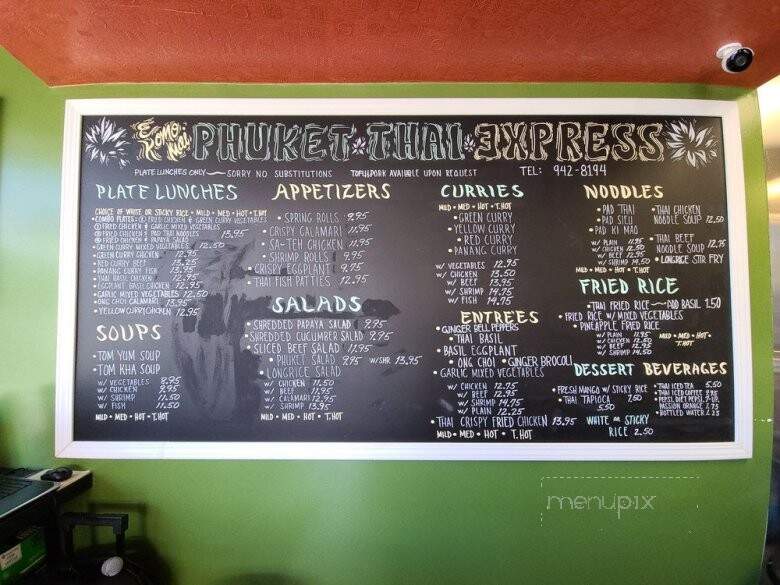 E Komo Mai
PHUKET THAI EXPRESS
PLATE LUNCHES ONLY — SORRY NO SUBSTITUTIONS TOFU/PORK AVAILABLE UPON REQUEST TEL: 942-8194
PLATE LUNCHES
CHOICE OF WHITE OR STICKY RICE • MILD • MED • HOT • T.HOT
• COMBO PLATES: ① FRIED CHICKEN & GREEN CURRY VEGETABLES
② FRIED CHICKEN & GARLIC MIXED VEGETABLES
③ FRIED CHICKEN & PAD THAI NOODLES 13.95
④ FRIED CHICKEN & PAPAYA SALAD
• GREEN CURRY MIXED VEGETABLES 12.50
• GREEN CURRY CHICKEN 12.95
• RED CURRY BEEF 13.25
• PANANG CURRY FISH 13.95
• THAI BASIL CHICKEN 12.95
• EGGPLANT BASIL CHICKEN 12.95
• GARLIC MIXED VEGETABLES 12.50
• ONG CHOI CALAMARI 13.95
• YELLOW CURRY CHICKEN 12.95
SOUPS
• TOM YUM SOUP
• TOM KHA SOUP
W/ VEGETABLES 8.95
W/ CHICKEN 9.95
W/ SHRIMP 11.50
W/ FISH 11.50
MILD • MED • HOT • T.HOT
APPETIZERS
• SPRING ROLLS 9.95
• CRISPY CALAMARI 11.95
• SA-TEH CHICKEN 11.95
• SHRIMP ROLLS 9.95
• CRISPY EGGPLANT 9.75
• THAI FISH PATTIES 12.95
SALADS
• SHREDDED PAPAYA SALAD 9.95
• SHREDDED CUCUMBER SALAD 9.95
• SLICED BEEF SALAD 11.95
• PHUKET SALAD 9.95 W/SHR. 13.95
• LONGRICE SALAD
W/ CHICKEN 11.50
W/ BEEF 11.95
W/ CALAMARI 12.95
W/ SHRIMP 13.95
MILD • MED • HOT • T.HOT
CURRIES
MILD • MED • HOT • T.HOT
• GREEN CURRY
• YELLOW CURRY
• RED CURRY
• PANANG CURRY
W/ VEGETABLES 12.95
W/ CHICKEN 13.50
W/ BEEF 13.95
W/ SHRIMP 14.75
W/ FISH 14.75
ENTREES
• GINGER BELL PEPPERS
• THAI BASIL
• BASIL EGGPLANT
• ONG CHOI • GINGER BROCOLI
• GARLIC MIXED VEGETABLES
W/ CHICKEN 12.75
W/ BEEF 12.95
W/ SHRIMP 14.75
W/ PLAIN 12.25
• THAI CRISPY FRIED CHICKEN 13.95
MILD • MED • HOT • T.HOT
NOODLES
• PAD THAI
• PAD SIEU
• PAD KI MAO
W/ PLAIN 11.95
W/ CHICKEN 12.50
W/ BEEF 12.95
W/ SHRIMP 14.50
MILD • MED • HOT • T.HOT
• THAI CHICKEN
NOODLE SOUP 12.50
• THAI BEEF
NOODLE SOUP 12.75
• LONGRICE STIR FRY
FRIED RICE
• THAI FRIED RICE — ADD BASIL 1.50
• FRIED RICE W/ MIXED VEGETABLES
• PINEAPPLE FRIED RICE
W/ PLAIN 11.95
W/ CHICKEN 12.50
W/ BEEF 12.95
W/ SHRIMP 14.50
MILD • MED • HOT •
T.HOT
DESSERT
• FRESH MANGO W/ STICKY RICE 7.50
• THAI TAPIOCA
5.50
BEVERAGES
• THAI ICED TEA 5.50
• THAI ICED COFFEE
• PEPSI, DIET PEPSI, 7-UP
PASSION ORANGE 2.75
• BOTTLED WATER
WHITE OR STICKY
RICE 2.50
menupix